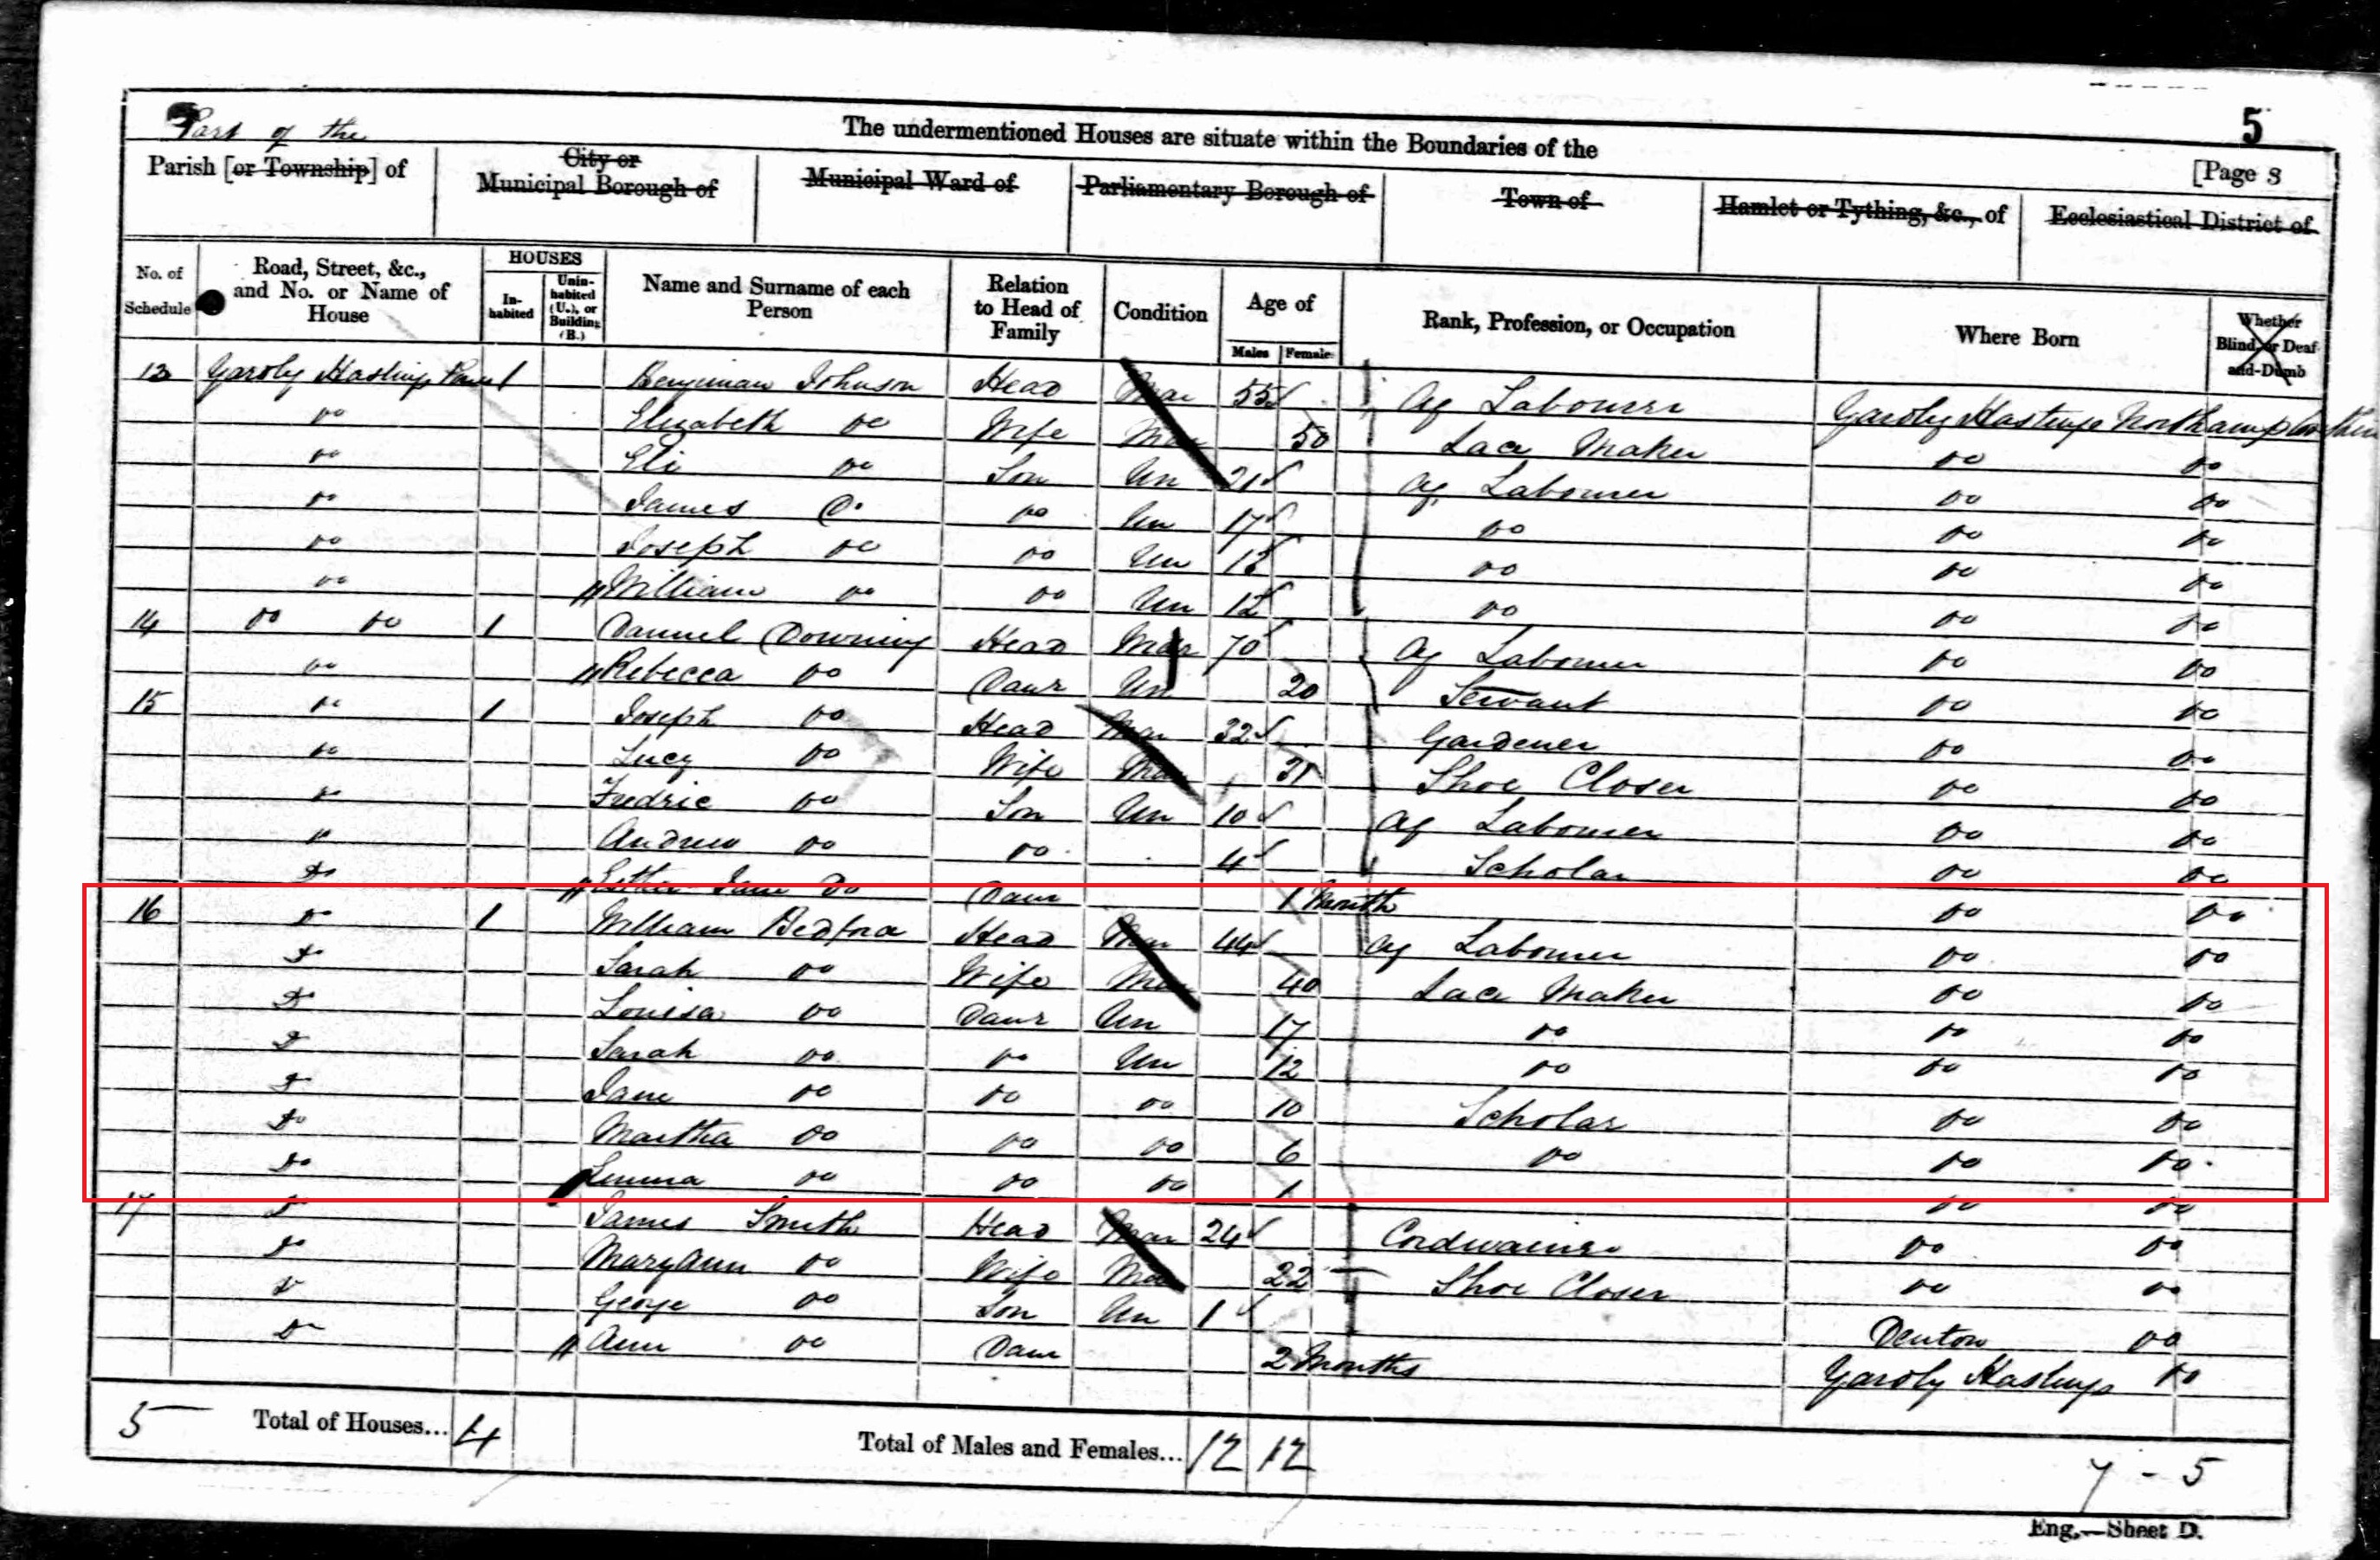 5
Part of the
The undermentioned Houses are situate within the Boundaries of the
[Page 3
Parish [or Township] of City or Municipal Borough of Municipal Ward of Parliamentary Borough of Town of Hamlet or Tything, &c., of Ecclesiastical District of
No. of Schedule Road, Street, &c., and No. or Name of House HOUSES Inhabited Uninhabited (U.), or Building (B.) Name and Surname of each Person Relation to Head of Family Condition Age of Males Females Rank, Profession, or Occupation Where Born Whether Blind, or Deaf-and-Dumb
13 Yardly Hastings 1 Benjiman Johnson Head Mar 55 Ag Labourer Yardly Hastings Northamptonshire
Do Elizabeth Do Wife Mar 50 Lace Maker Do Do
Do Eli Do Son Un 21 Ag Labourer Do Do
Do James Do Do Un 17 Do Do Do
Do Joseph Do Do Un Do Do Do
Do William Do Do Un 12 Do Do Do
14 Do Do 1 Daniel Downing Head Mar 70 Ag Labourer Do Do
Do Rebecca Do Daur Un 20 Servant Do Do
15 Do 1 Joseph Do Head Mar 32 Gardener Do Do
Do Lucy Do Wife Mar 31 Shoe Closer Do Do
Do Fredric Do Son Un 10 Ag Labourer Do Do
Do Andrew Do Do 4 Scholar Do Do
Do Esther Jane Do Daur 1 Month Do Do
16 Do 1 William Bedford Head Mar 44 Ag Labourer Do Do
Do Sarah Do Wife Mar 40 Lace Maker Do Do
Do Louisa Do Daur Un 17 Do Do Do
Do Sarah Do Do Un 12 Do Do Do
Do Jane Do Do Do 10 Scholar Do Do
Do Martha Do Do Do 6 Do Do Do
Do Emma Do Do Do 1 Do Do
17 Do James Smith Head Mar 24 Cordwainer Do Do
Do Mary Ann Do Wife Mar 22 Shoe Closer Do Do
Do George Do Son Un 1 Denton Do
Do Ann Do Daur 2 Months Yardly Hastings Do
5 Total of Houses... 4 Total of Males and Females... 12 12 7 - 5
Eng.—Sheet D.